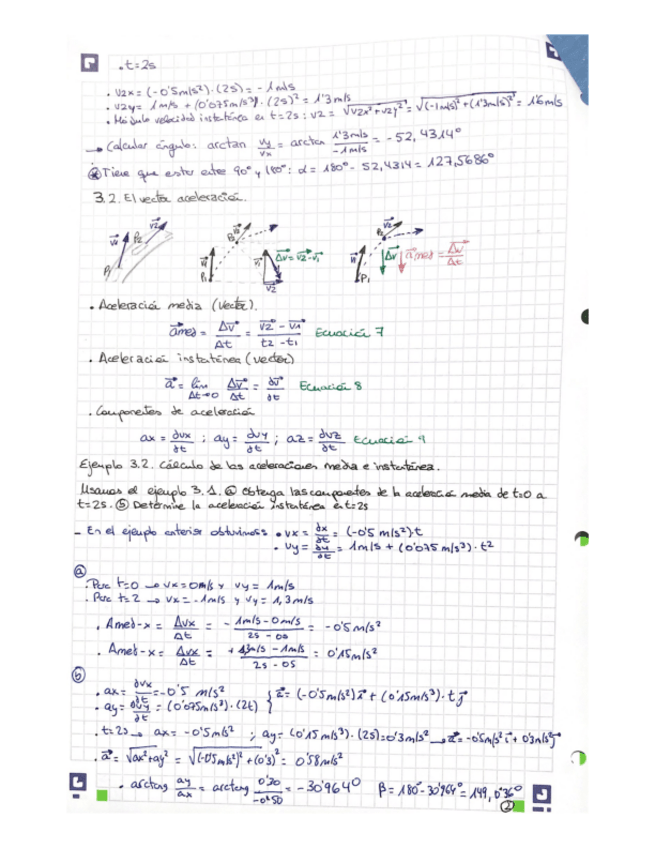 . t=2s
. v2x = (-0'5m/s²)·(2s) = -1m/s
. v2y = 1m/s + (0'075m/s³)·(2s)² = 1'3m/s
. Módulo velocidad instantánea en t=2s: v2 = √v2x²+v2y² = √(-1m/s)²+(1'3m/s)² = 1'6m/s
→ Calcular ángulo: arctan vy/vx = arctan 1'3m/s / -1m/s = -52,4314°
Tiene que estar entre 90° y 180°: α = 180° - 52,4314 = 127,5686°
3.2. El vector aceleración.
v1 v2 P1 P2 v1 P1 P2 v2 v1 v2 Δv=v2-v1 v1 P1 P2 v2 Δv amed = Δv/Δt
. Aceleración media (vector).
amed = Δv/Δt = v2-v1 / t2-t1 Ecuación 7
. Aceleración instantánea (vector)
a = lím Δt→0 Δv/Δt = ∂v/∂t Ecuación 8
. Componentes de aceleración
ax = ∂vx/∂t ; ay = ∂vy/∂t ; az = ∂vz/∂t Ecuación 9
Ejemplo 3.2. Cálculo de las aceleraciones media e instantánea.
Usamos el ejemplo 3.1. ⓐ Obtenga las componentes de la aceleración media de t=0 a
t=2s. ⓑ Determine la aceleración instantánea en t=2s
- En el ejemplo anterior obtuvimos . vx = ∂x/∂t = (-0'5 m/s²)t
. vy = ∂y/∂t = 1m/s + (0'075 m/s³)·t²
ⓐ
. Para t=0 → vx=0m/s y vy= 1m/s
. Para t=2 → vx= -1m/s y vy= 1,3m/s
. Amed-x = Δvx/Δt = -1m/s-0m/s / 2s-0s = -0'5m/s²
. Amed-x = Δvx/Δt = +1,3m/s-1m/s / 2s-0s = 0'15m/s²
ⓑ
. ax = ∂vx/∂t = -0'5 m/s²
. ay = ∂vy/∂t = (0'075m/s³)·(2t) { a = (-0'5m/s²)i + (0'15m/s³)·t j
. t=2s → ax = -0'5m/s² ; ay = (0'15 m/s³)·(2s)=0'3m/s² → a = -0'5m/s² i + 0'3m/s² j
. a = √ax²+ay² = √(-0'5m/s²)²+(0'3)² = 0'58m/s²
. arctang ay/ax = arctang 0'30/-0'50 = -30'964° β = 180-30'964° = 149,036°
2